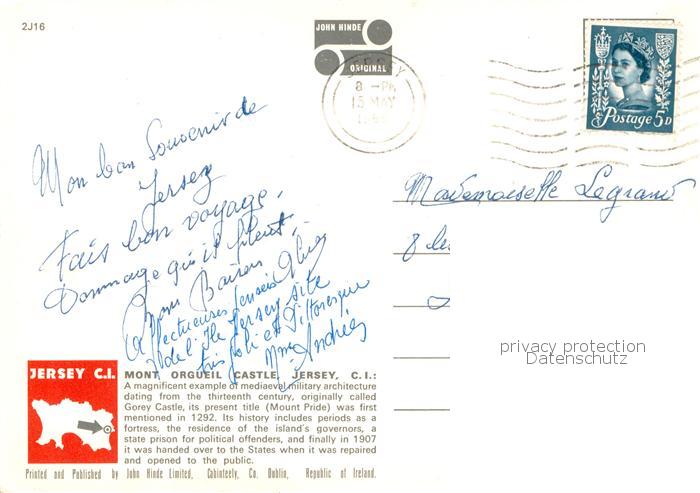 2J16
JOHN HINDE
ORIGINAL
JERSEY
8 - PM
15 MAY
Postage 5D
Mon bon Souvenir de
Jersey
Fais bon voyage,
Dommage qu'il pleut,
Bons Baisers
Affectueuses pensées
de l'Ile Jersey site
très joli et Pittoresque
Mme Andrée
Mademoiselle Legrand
8
privacy protection
Datenschutz
JERSEY C.I.
MONT ORGUEIL CASTLE, JERSEY, C.I.:
A magnificent example of mediaeval military architecture
dating from the thirteenth century, originally called
Gorey Castle, its present title (Mount Pride) was first
mentioned in 1292. Its history includes periods as a
fortress, the residence of the island's governors, a
state prison for political offenders, and finally in 1907
it was handed over to the States when it was repaired
and opened to the public.
Printed and Published by John Hinde Limited, Cabinteely, Co. Dublin, Republic of Ireland.